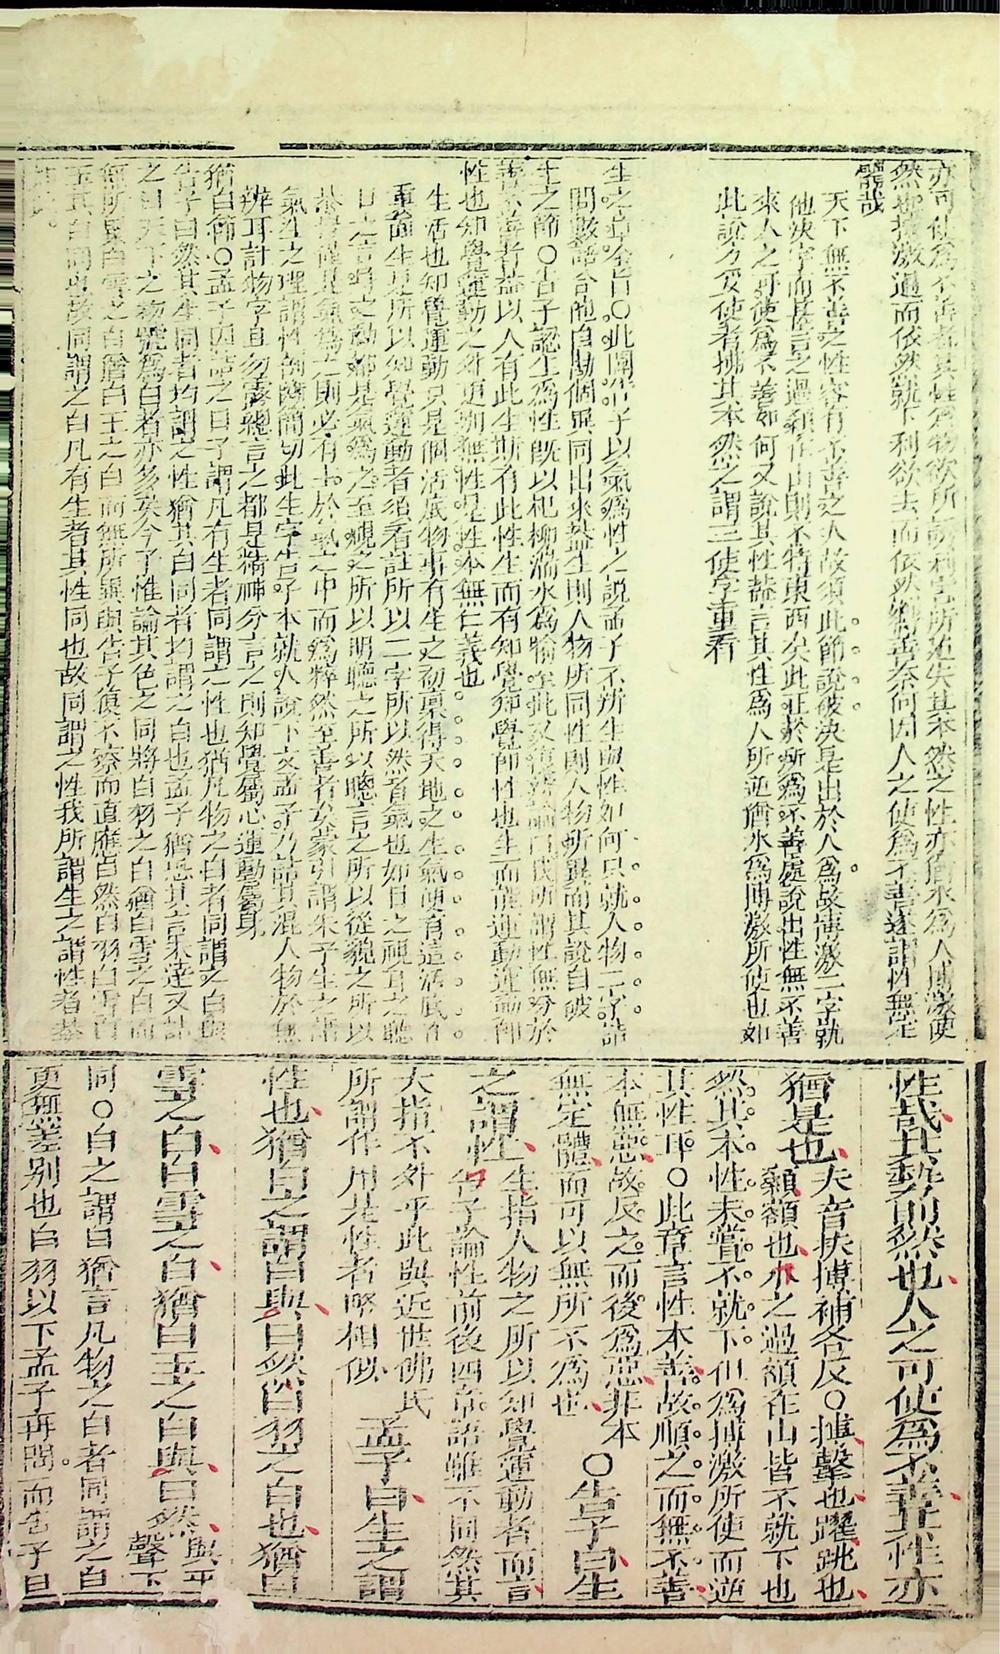 亦可使為不善者其性為物欲所誘利害所迫失其本然之性亦猶水為人搏激使
然也搏激過而依然就下利欲去而依然嚮善奈何因人之使為不善遂謂性無定
體哉
天下無不善之性容有不善之人故須此節說破決是出於人為故搏激二字就
他決字而甚言之過顙在山則不特東西矣此正於所為不善處說出性無不善
來人之可使為不善如何又說其性蓋言其性為人所逆猶水為搏激所使也如
此說方妥使者拂其本然之謂三使字重看
生之謂章全旨〇此闢告子以氣為性之說孟子不辨生與性如何只就人物二字詰
問數語令他自勘個異同出來蓋生則人物所同性則人物所異而其說自破
生之節〇告子認生為性既以杞柳湍水為喻至此又曰我所謂性無分於
善不善者蓋以人有此生斯有此性生而有知覺知覺即性也生而能運動運動即
性也知覺運動之外更別無性是性本無仁義也
生活也知覺運動只是個活底物事有生之初稟得天地之生氣便有這活底在
重論生是所以知覺運動者須看註所以二字所以然者氣也如目之視耳之聽
口之言時之動都是氣為之至視之所以明聽之所以聰言之所以從貌之所以
恭是性是氣為之則必有主於氣之中而為粹然至善者矣蒙引謂朱子生之謂
氣生之理謂性剖斷簡切此生字告子本就人說下文孟子乃詰其混人物於無
辨耳計物字且勿露總言之都是精神分言之則知覺屬心運動屬身
猶白節〇孟子因詰之曰子謂凡有生者同謂之性也猶凡物之白者同謂之白與
告子曰然其生同者均謂之性猶其白同者均謂之白也孟子猶恐其言未達又詰
之曰天下之物號為白者亦多矣今子惟論其色之同將白羽之白猶白雪之白而
無所異白雪之白猶白玉之白而無所異與告子復不察而直應曰然白羽白雪白
玉其白同也故同謂之白凡有生者其性同也故同謂之性我所謂生之謂性者蓋
性哉其勢則然也人之可使為不善其性亦
猶是也夫音扶搏補各反〇搏擊也躍跳也
顙額也水之過額在山皆不就下也
然其本性未嘗不就下但為搏激所使而逆
其性耳〇此章言性本善故順之而無不善
本無惡故反之而後為惡非本
無定體而可以無所不為也〇告子曰生
之謂性生指人物之所以知覺運動者而言
告子論性前後四章語雖不同然其
大指不外乎此與近世佛氏
所謂作用是性者略相似孟子曰生之謂
性也猶白之謂白與曰然白羽之白也猶白
雪之白白雪之白猶白玉之白與曰然與平
聲下
同〇白之謂白猶言凡物之白者同謂之白
更無差別也白羽以下孟子再問而告子曰